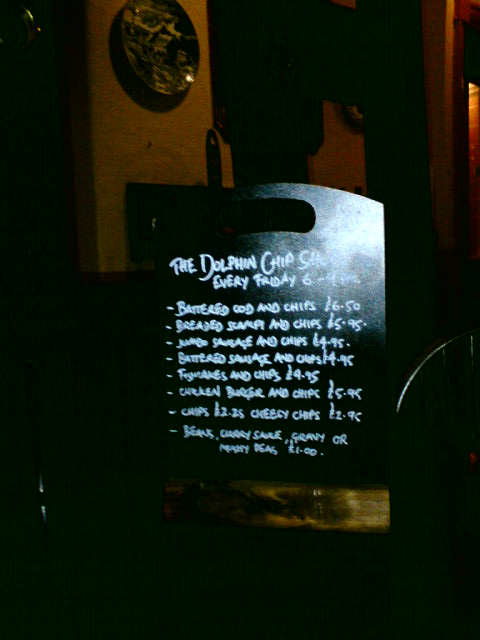 THE DOLPHIN CHIP
EVERY FRIDAY 6 -
- BATTERED COD AND CHIPS £6.50
- BREADED SCAMPI AND CHIPS £5.95
- JUMBO SAUSAGE AND CHIPS £4.95
- BATTERED SAUSAGE AND CHIPS £4.95
- FISHCAKES AND CHIPS £4.95
- CHICKEN BURGER AND CHIPS £5.95
- CHIPS £2.25 CHEESY CHIPS £2.95
- BEANS, CURRY SAUCE, GRAVY OR
MUSHY PEAS £1.00.